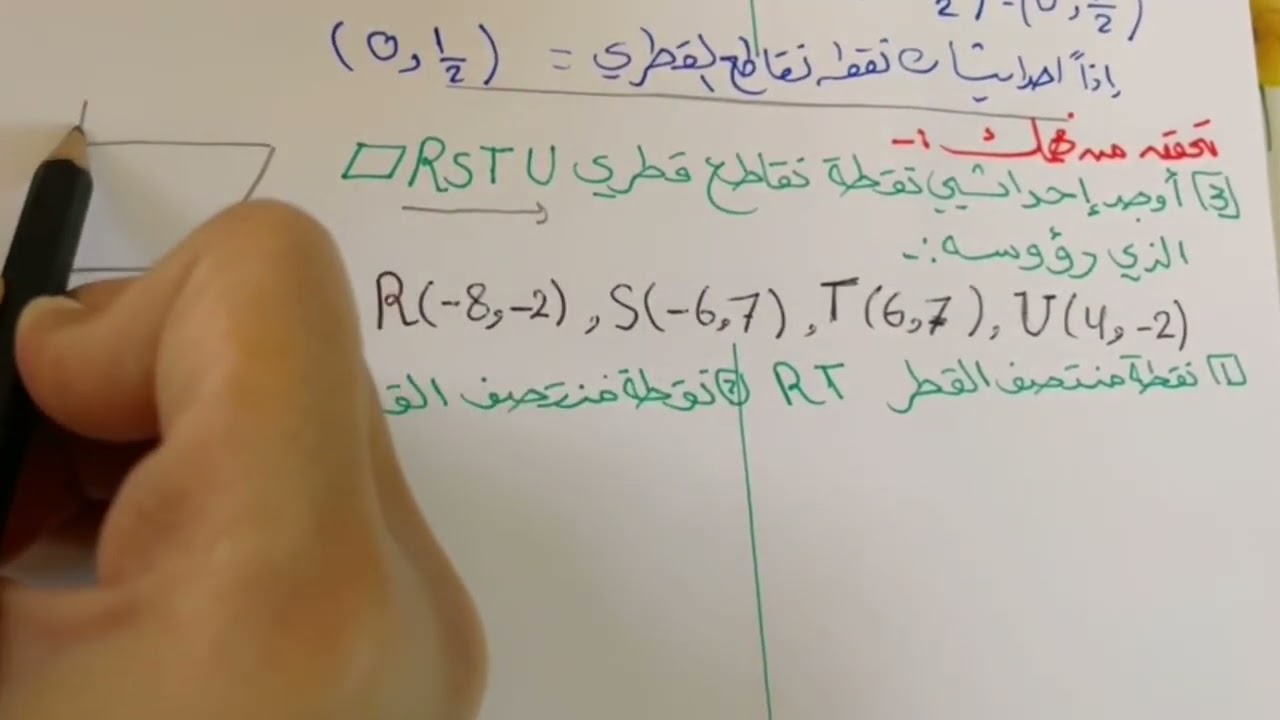 (0, 1/2)
إذاً احداثيات نقطة تقاطع القطري = (0, 1/2)
تحقق من فهمك :-
[3] أوجد إحداثيي نقطة تقاطع قطري ▱ RSTU
الذي رؤوسه :-
R(-8,-2) , S(-6,7) , T(6,7) , U(4,-2)
[1] نقطة منتصف القطر RT
[2] نقطة منتصف